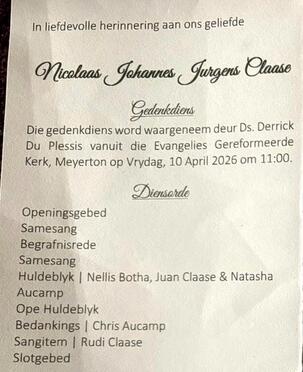 In liefdevolle herinnering aan ons geliefde
Nicolaas Johannes Jurgens Claase
Gedenkdiens
Die gedenkdiens word waargeneem deur Ds. Derrick
Du Plessis vanuit die Evangelies Gereformeerde
Kerk, Meyerton op Vrydag, 10 April 2026 om 11:00.
Diensorde
Openingsgebed
Samesang
Begrafnisrede
Samesang
Huldeblyk | Nellis Botha, Juan Claase & Natasha
Aucamp
Ope Huldeblyk
Bedankings | Chris Aucamp
Sangitem | Rudi Claase
Slotgebed